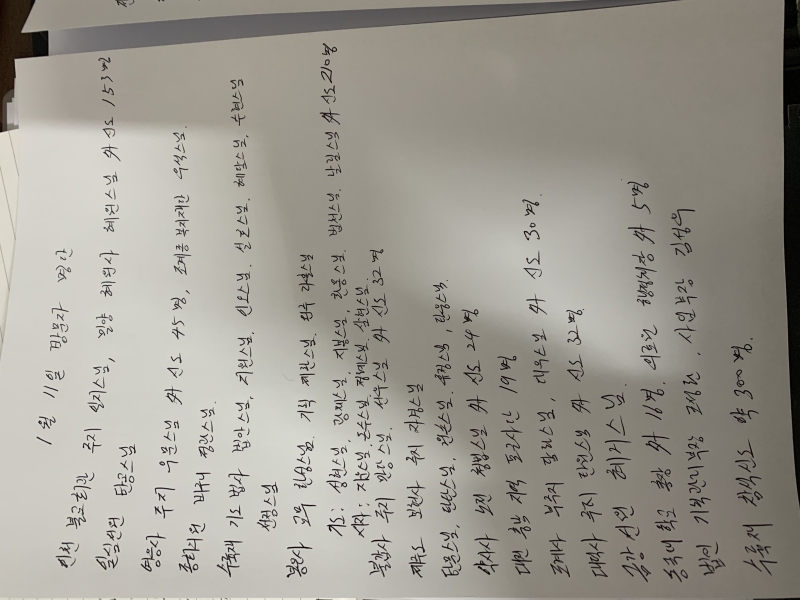 1월 11일 방문자 명단
인천 불교회관 주지 일지스님, 밀양 혜원사 혜원스님 外 신도 153명
일심선원 탄공스님
영응사 주지 우문스님 外 신도 45명, 조계종 복지재단 우석스님.
총화위원 비구니 명관스님.
수륙재 기도 법사 법안스님, 지원스님. 신오스님. 설호스님. 혜안스님, 수현스님
선정스님
봉은사 교무 진성스님. 기획 제관스님. 원주 각운스님
기도: 성현스님, 강제스님, 지봉스님, 진홍스님. 법천스님. 남길스님 外 신도 210명
시자: 지섭스님, 문수스님, 정메스님, 상현스님.
불갑사 주지 만당스님. 선우스님 外 신도 32명
제주도 보현사 주지 지정스님
탄문스님, 탄탄스님, 원순스님. 유정스님, 탄웅스님.
약사사 노전 청법스님 外 신도 24명
대전 충남 지역 포교사단 19명
조계사 부주지 담화스님, 대우스님 外 신도 30명.
대덕사 주지 탄전스님 外 신도 32명
금강선원 혜거스님.
동국대학교 총장 外 16명. 의료원 행정처장 外 5명
법인 기획관리부장 고영현, 사업부장 김성욱
수륙재 참석신도 약 300명.